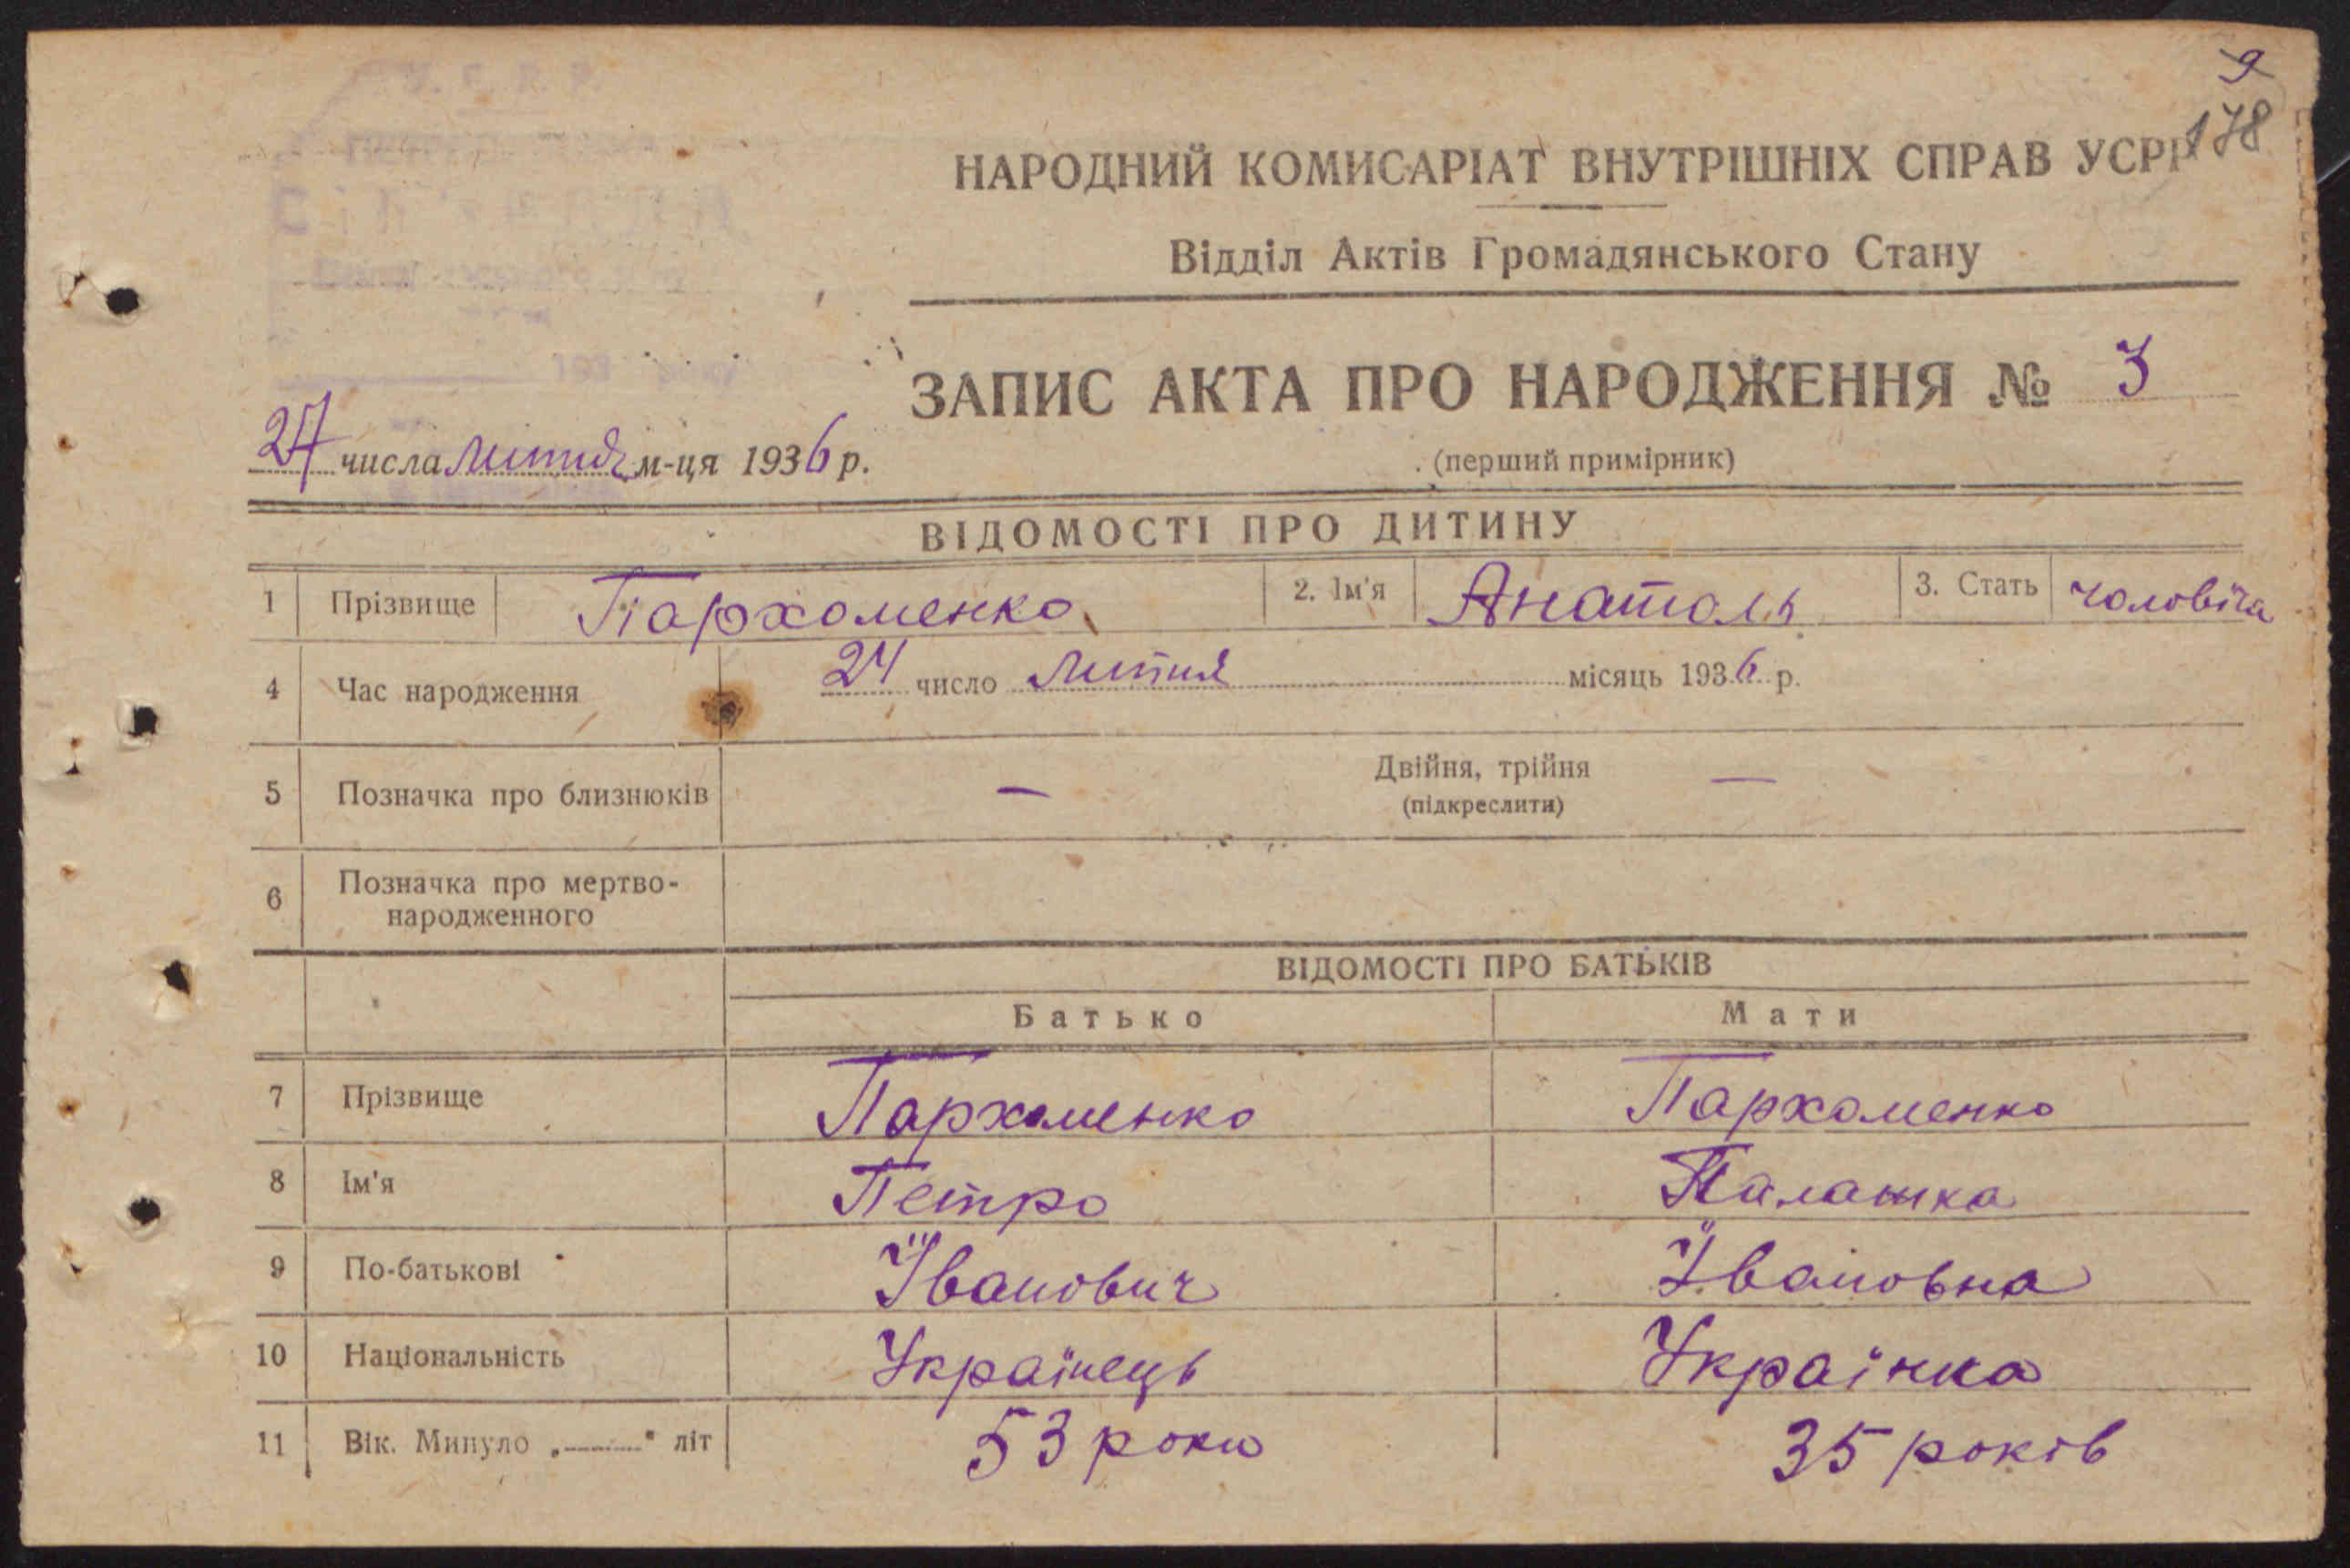 9
178
У. С. Р. Р.
НАРОДНИЙ КОМИСАРІАТ ВНУТРІШНІХ СПРАВ УСРР
Відділ Актів Громадянського Стану
193 року
ЗАПИС АКТА ПРО НАРОДЖЕННЯ № 3
27 числа лютня м-ця 1936 р.
(перший примірник)
ВІДОМОСТІ ПРО ДИТИНУ
1 Прізвище Пархоменко 2. Ім'я Анатоль 3. Стать чоловіча
4 Час народження 24 число лютня місяць 1936 р.
5 Позначка про близнюків — Двійня, трійня —
(підкреслити)
6 Позначка про мертво-
народженного
ВІДОМОСТІ ПРО БАТЬКІВ
Батько Мати
7 Прізвище Пархоменко Пархоменко
8 Ім'я Петро Палашка
9 По-батькові Іванович Івановна
10 Національність Українець Українка
11 Вік. Минуло „ " літ 53 роки 35 років